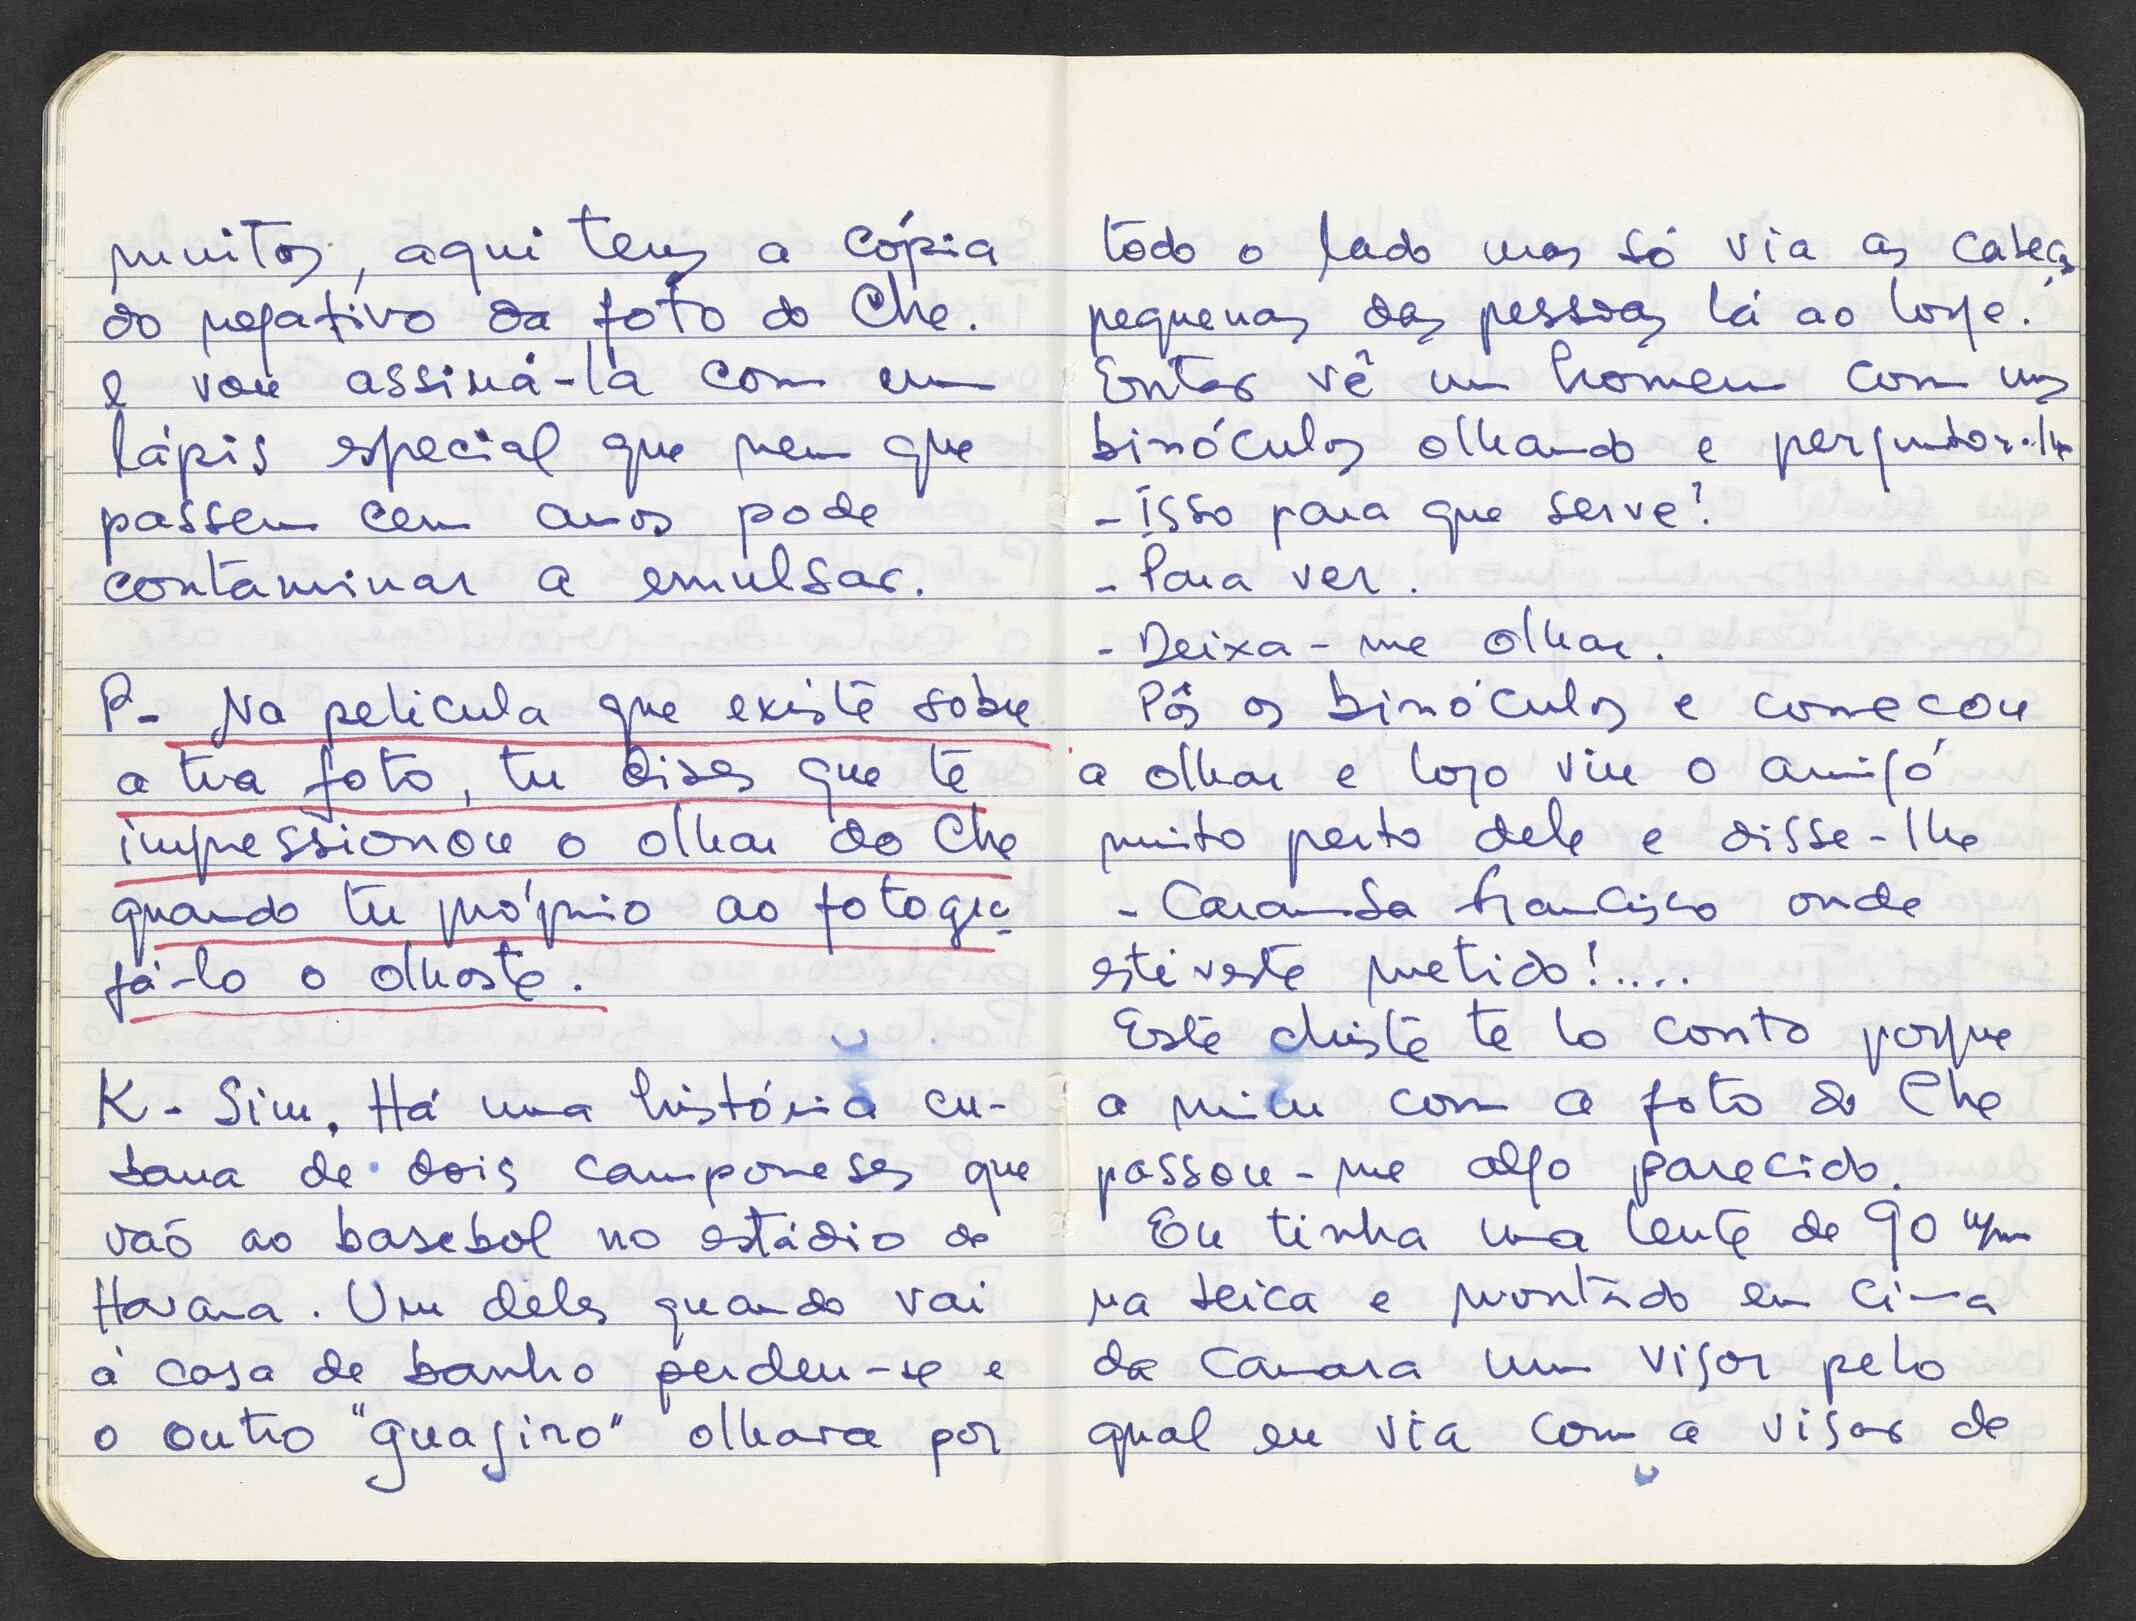 muitos, aqui tens a cópia
do negativo da foto do Che.
e vou assiná-la com um
lápis especial que nem que
passem cem anos pode
contaminar a emulsão.
P- Na pelicula que existe sobre
a tua foto, tu dizes que te
impressionou o olhar do Che
quando tu próprio ao fotogra-
fá-lo o olhaste.
K- Sim. Há uma história cu-
bana de dois camponeses que
vão ao basebol no estádio de
Havana. Um deles quando vai
à casa de banho perdeu-se e
o outro "guajiro" olhava por
todo o lado mas só via as cabeças
pequenas das pessoas lá ao longe.
Então vê um homem com uns
binóculos olhando e perguntou-lhe
- Isso para que serve?
- Para ver.
- Deixa-me olhar.
Pôs os binóculos e começou
a olhar e logo viu o amigo
muito perto dele e disse-lhe
- Caramba Francisco onde
estiveste metido!....
Este chiste te lo conto porque
a mim com a foto do Che
passou-me algo parecido.
Eu tinha uma lente de 90 m/m
na Leica e montado em cima
da camara um visor pelo
qual eu via com a visão de